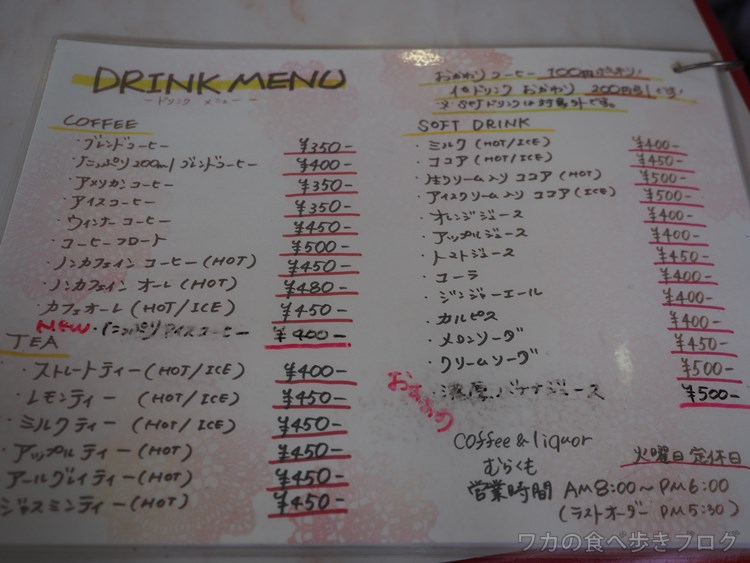 DRINK MENU
ードリンク メニューー
COFFEE
・ブレンドコーヒー ¥350-
・たっぷり200ml ブレンドコーヒー ¥400-
・アメリカンコーヒー ¥350-
・アイスコーヒー ¥350-
・ウィンナーコーヒー ¥450-
・コーヒーフロート ¥500-
・ノンカフェイン コーヒー(HOT) ¥450-
・ノンカフェイン オーレ(HOT) ¥480-
・カフェオーレ(HOT/ICE) ¥450-
NEW・たっぷりアイスコーヒー ¥400-
TEA
・ストレートティー(HOT/ICE) ¥400-
・レモンティー (HOT/ICE) ¥450-
・ミルクティー (HOT/ICE) ¥450-
・アップルティー(HOT) ¥450-
アールグレイティー(HOT) ¥450-
ジャスミンティー(HOT) ¥450-
おかわり コーヒー 100円
他ドリンク おかわり 200円引です!
※ Softドリンクは対象外です。
SOFT DRINK
・ミルク(HOT/ICE) ¥400-
・ココア(HOT/ICE) ¥450-
・生クリーム入り ココア(HOT) ¥500-
・アイスクリーム入り ココア(ICE) ¥500-
・オレンジジュース ¥400-
・アップルジュース ¥400-
・トマトジュース ¥450-
・コーラ ¥400-
・ジンジャーエール ¥400-
・カルピス ¥400-
・メロンソーダ ¥450-
・クリームソーダ ¥500-
・濃厚バナナジュース ¥500-
coffee & liquor
むらくも
火曜日定休日
営業時間 AM8:00〜PM6:00
(ラストオーダー PM5:30)
ワカの食べ歩きブログ